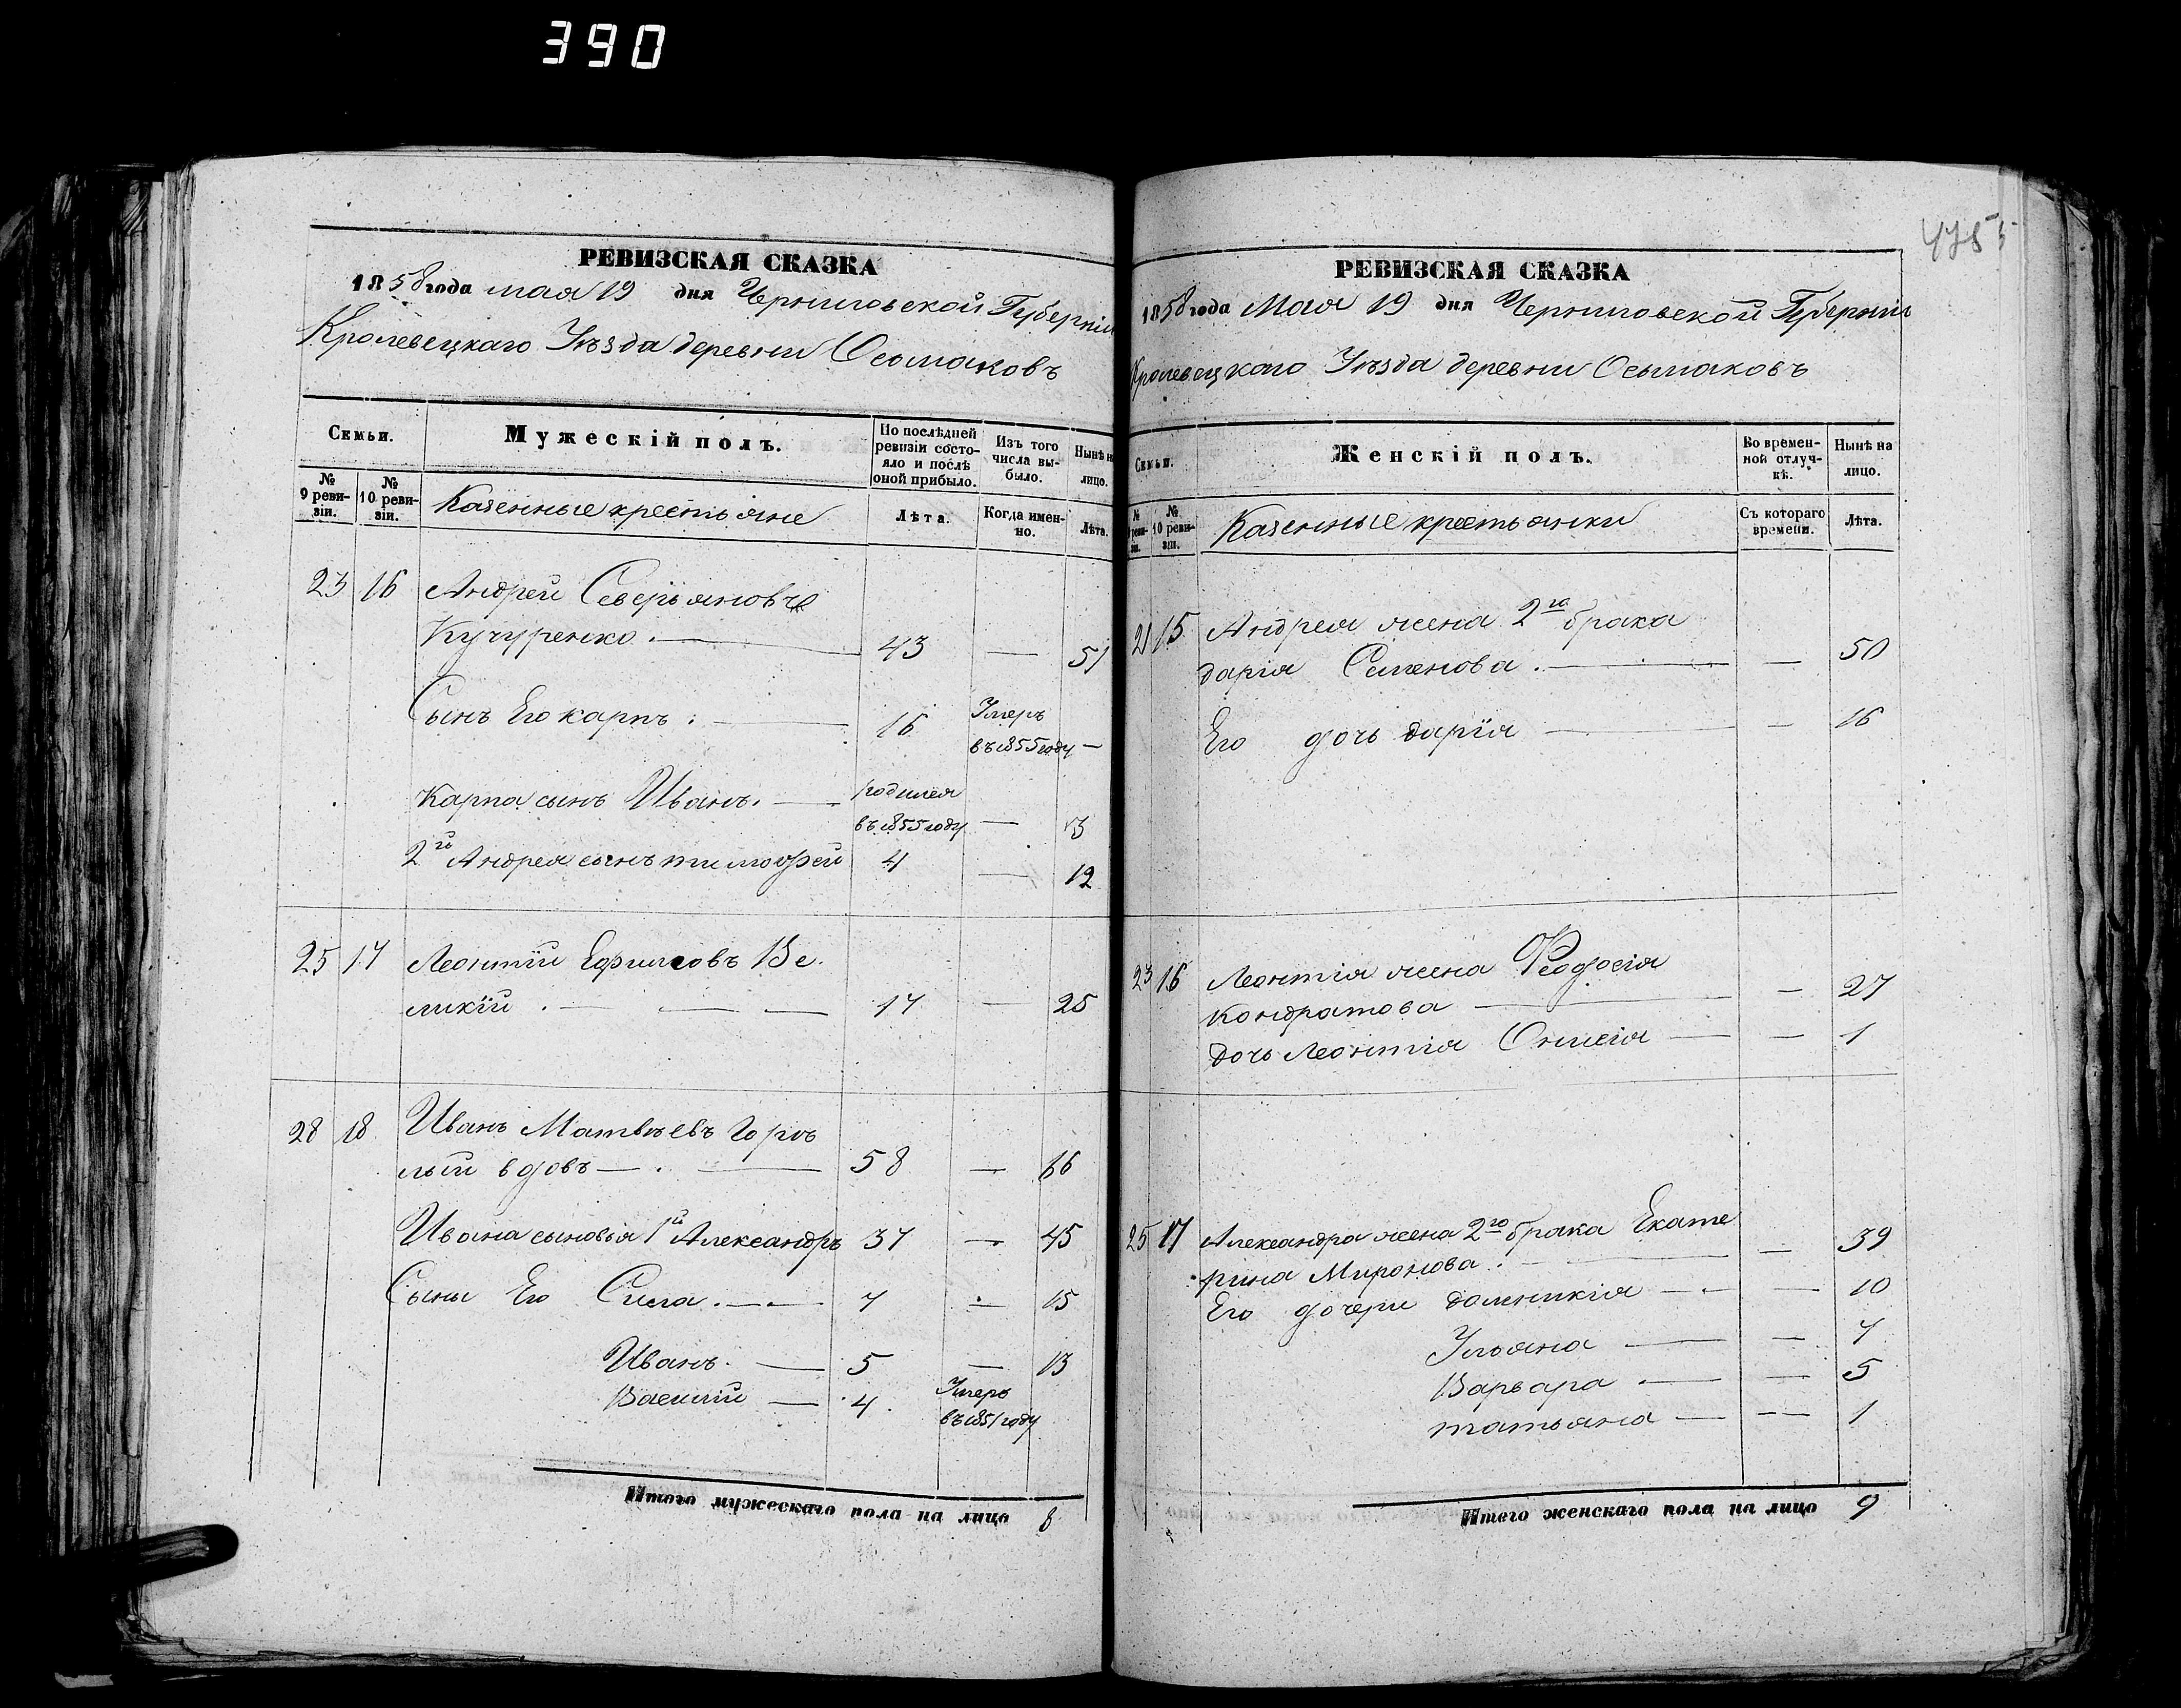 390
РЕВИЗСКАЯ СКАЗКА
1858 года мая 19 дня Черниговской Губерніи
Кролевецкаго Уѣзда деревни Осьмаковъ
Семьи.
Мужескій полъ.
По послѣдней ревизіи состояло и послѣ оной прибыло.
Изъ того числа выбыло.
Нынѣ н
лицо.
№ 9 реви-зіи.
№ 10 реви-зіи.
Казенные крестьяне
Лѣта.
Когда имен-но.
Лѣта.
23 16 Андрей Северьяновъ
Кучуренко. — 43 — 51
Сынъ Его карпъ. — 16 Умеръ
въ 1855 году —
Карпа сынъ Иванъ. — родился
въ 1855 году — 3
2й Андрея сынъ тимофей 4 — 12
25 17 Леонтій Ефимовъ Ве
ликій. — — — 17 — 25
28 18 Иванъ Матвѣевъ Горѣ
лый вдовъ — . — 58 — 66
Ивана сыновья 1й Александръ 37 — 45
Сыны Его Сила. — 7 — 15
Иванъ. — 5 — 13
Василій — 4. Умеръ
въ 1851 году
Итого мужескаго пола на лицо 8
РЕВИЗСКАЯ СКАЗКА
1858 года Мая 19 дня Черниговской Губерніи
Кролевецкаго Уѣзда деревни Осьмаковъ
Семьи.
Женскій полъ.
Во времен-ной отлуч-кѣ.
Нынѣ на лицо.
№ 10 реви-зіи.
Казенные крестьянки
Съ котораго времени.
Лѣта.
21 15 Андрея жена 2го брака
дарія Семенова. — — 50
Его дочь дарія — — 16
23 16 Леонтія жена Феодосія
Кондратова — — 27
дочь Леонтія Онисія — — 1
25 17 Александра жена 2го брака Екате
рина Миронова. — — 39
Его дочери доменикія — — 10
Ульяна — — 7
Варвара — — 5
татьяна — — 1
Итого женскаго пола на лицо 9